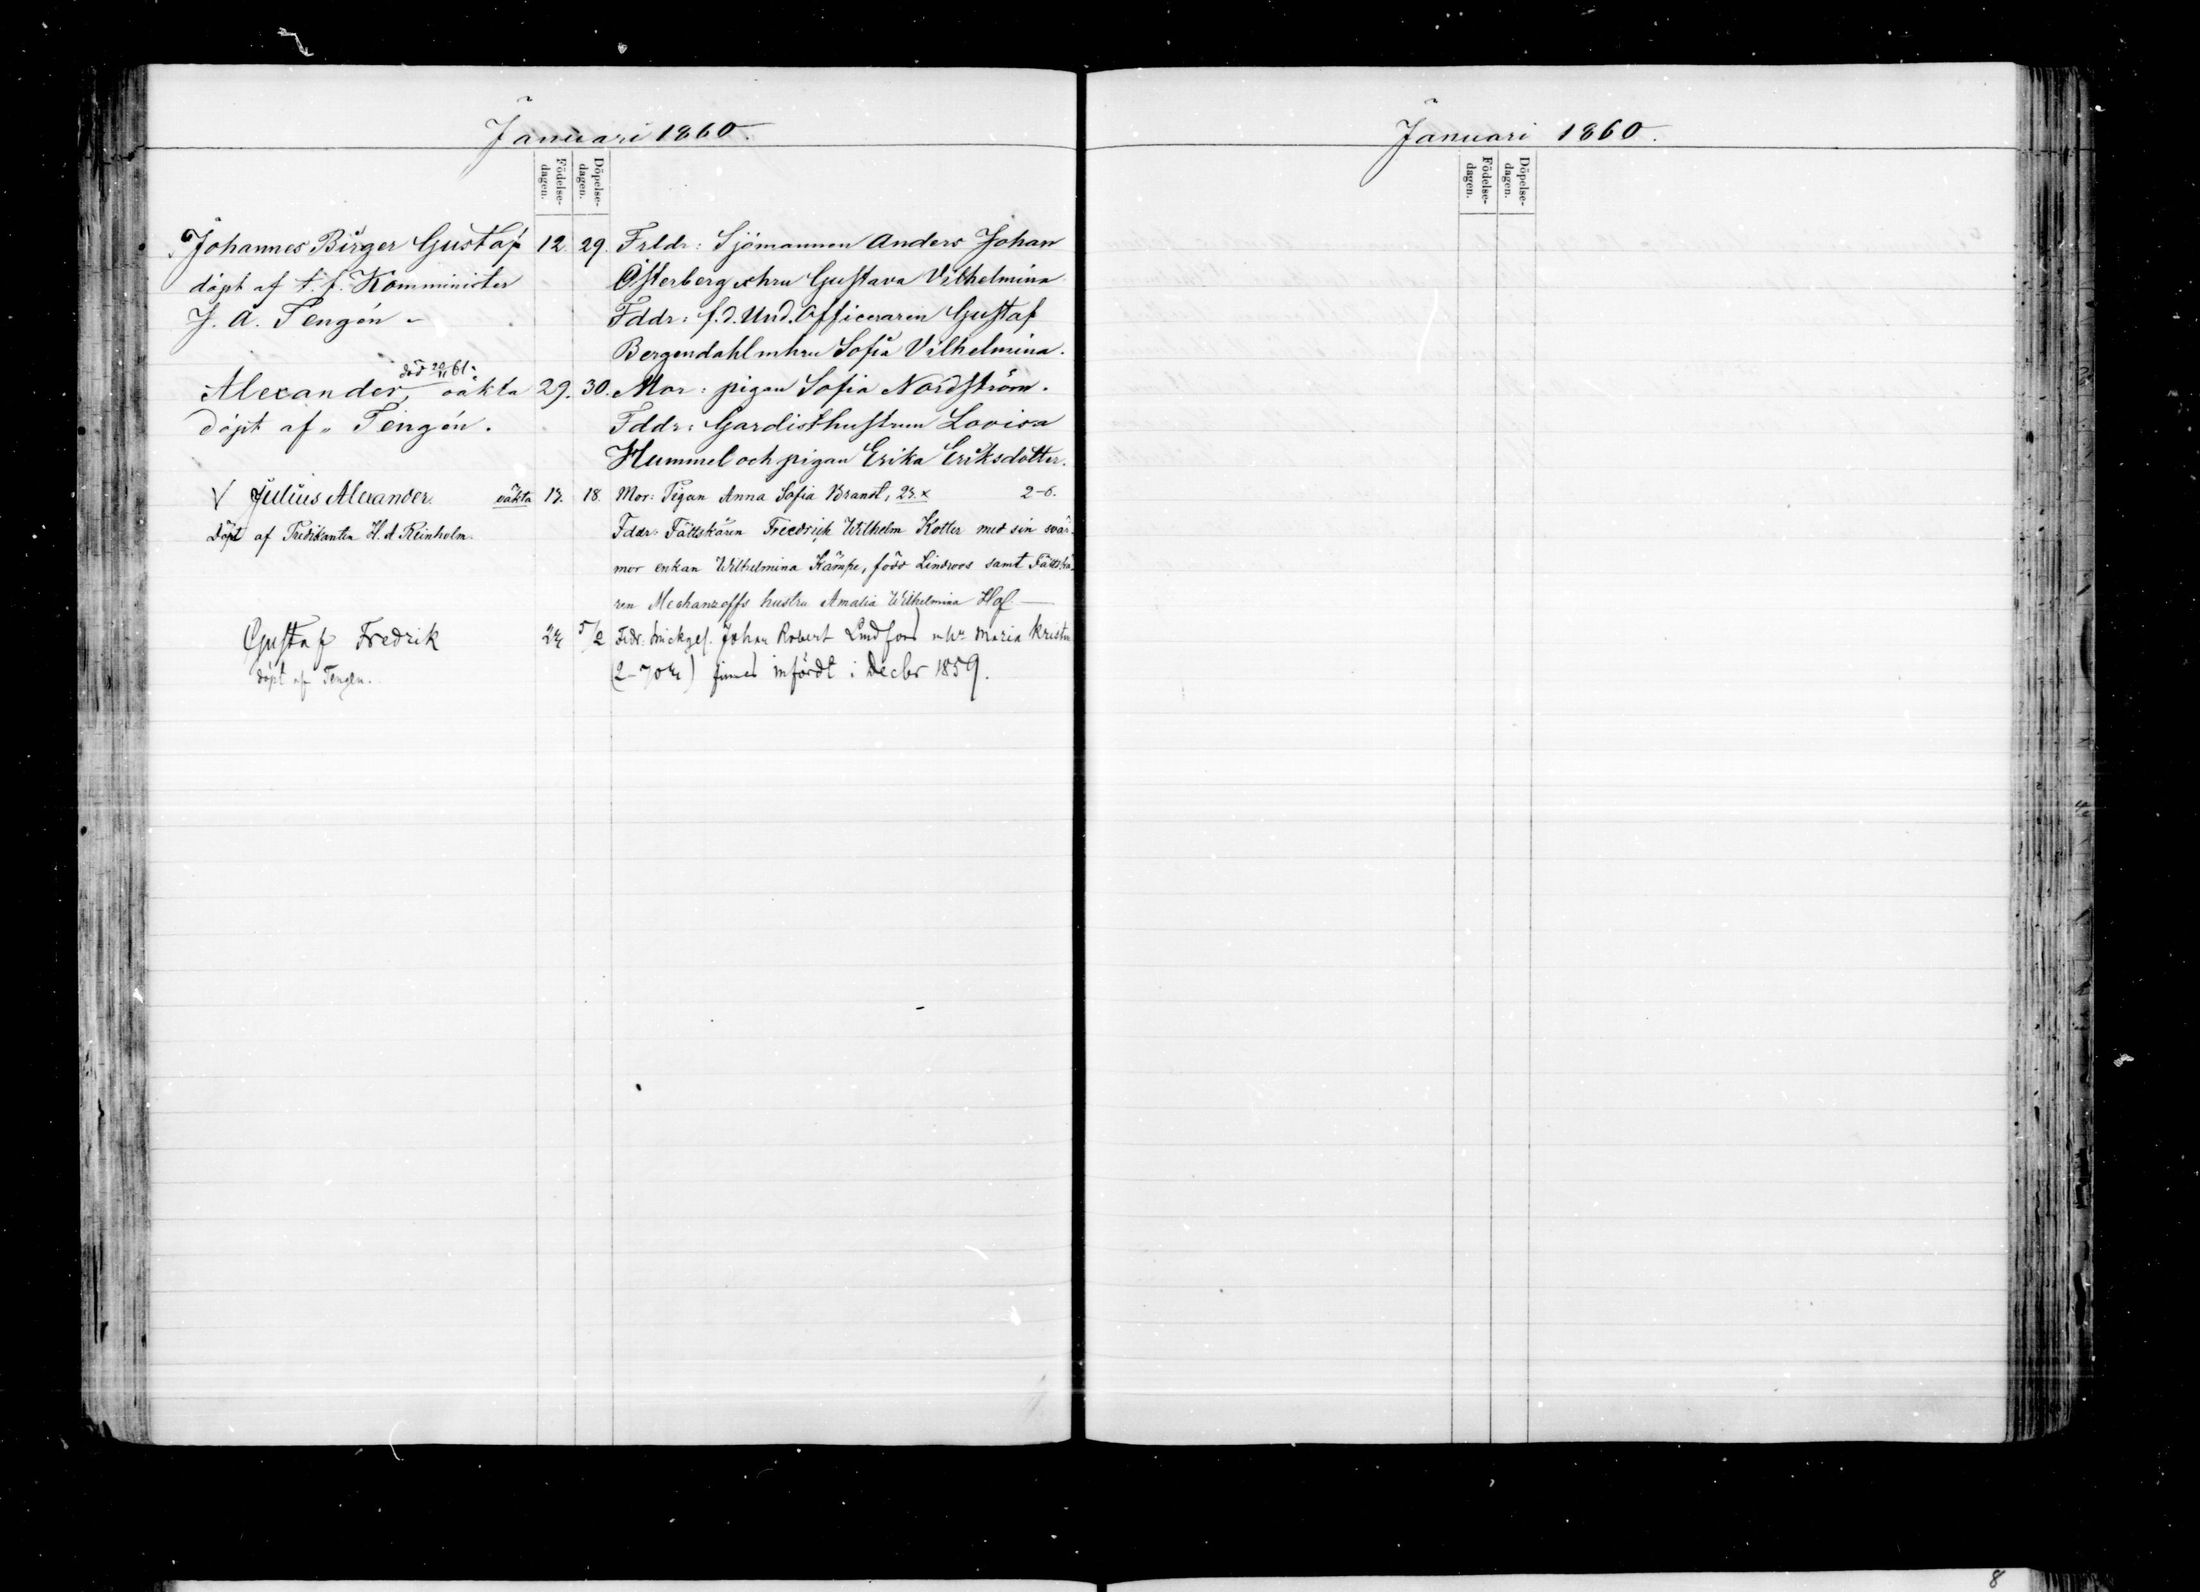 Januari 1860.
Födelse-
dagen.
Döpelse-
dagen.
Johannes Birger Gustaf 12 29. Frldr: Sjömannen Anders Johan
döpt af t. f. Komminister Österberg o hru Gustava Vilhelmina
J. A. Tengén Fddr: f. d. Und. Officeraren Gustaf
Bergendahl m hru Sofia Vilhelmina.
död 20/11 61.
Alexander, oäkta 29. 30. Mor: pigan Sofia Nordström.
döpt af " Tengén. Fddr: Gardisthustrun Lovisa
Hummel och pigan Erika Eriksdotter.
√ Julius Alexander. oäkta 13. 18. Mor: Pigan Anna Sofia Brandt, 23. x 2-6.
Döpt af Predikanten H. A Reinholm. Fddr: Fältskären Friedrich Wilhelm Kotter med sin svär-
mor enkan Wilhelmina Kämpe, född Lindroos samt Fältskä-
ren Mechanzoffs hustru Amalia Wilhelmina Hof.
Gustaf Fredrik 24 5/2 Frldr: Johan Robert Lindfors m hr Maria Kristin
döpt af Tengén. (2-70) finnes infördt i Decbr 1859.
Januari 1860.
Födelse-
dagen.
Döpelse-
dagen.
8